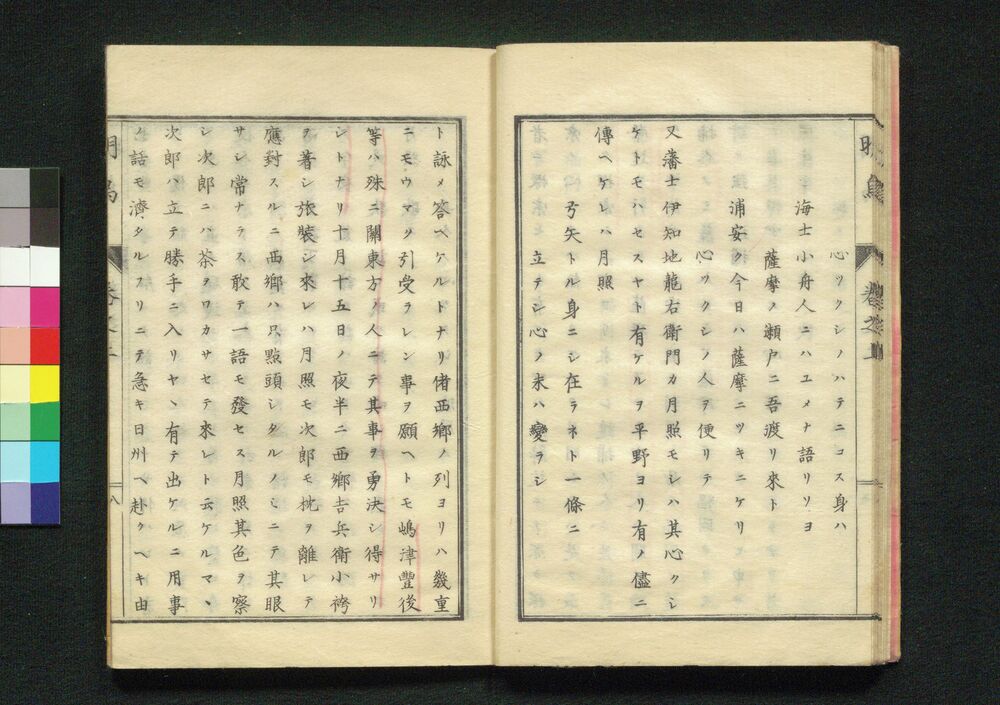 心ツクシノハテニコス身ハ
海士小舟人ニハユメナ語リソヨ
薩摩ノ瀬戸ニ吾渡リ來ト
浦安ク今日ハ薩摩ニツキニケリ
心ツクシノ人ヲ便リテ
又藩士伊知地龍右衛門カ月照モシハ其心クシ
ケトモハセスヤト有ケルヲ平野ヨリ有ノ儘ニ
傳ヘケレハ月照
弓矢トル身ニシ在ラネト一條ニ
立テシ心ノ末ハ變ラシ
ト詠メ答ヘケルトナリ偖西郷ノ列ヨリハ幾重
ニモウマク引受ラレン事ヲ願ヘトモ嶋津豐後
等ハ殊ニ關東方ノ人ニテ其事ヲ勇決シ得サリ
シトナリ十月十五日ノ夜半ニ西郷吉兵衛小袴
ヲ著シ旅裝シ來レハ月照モ次郎モ枕ヲ離レテ
應對スルニ西郷ハ只點頭シタルノミニテ其眼
サシ常ナラス敢テ一語モ發セス月照其色ヲ察
シ次郎ニハ茶ヲワカサセテ來レト云ケルマヽ
次郎ハ立テ勝手ニ入リヤヽ有テ出ケルニ用事
ノ話モ濟タルフリニテ急キ日州ヘ赴クヘキ由
八